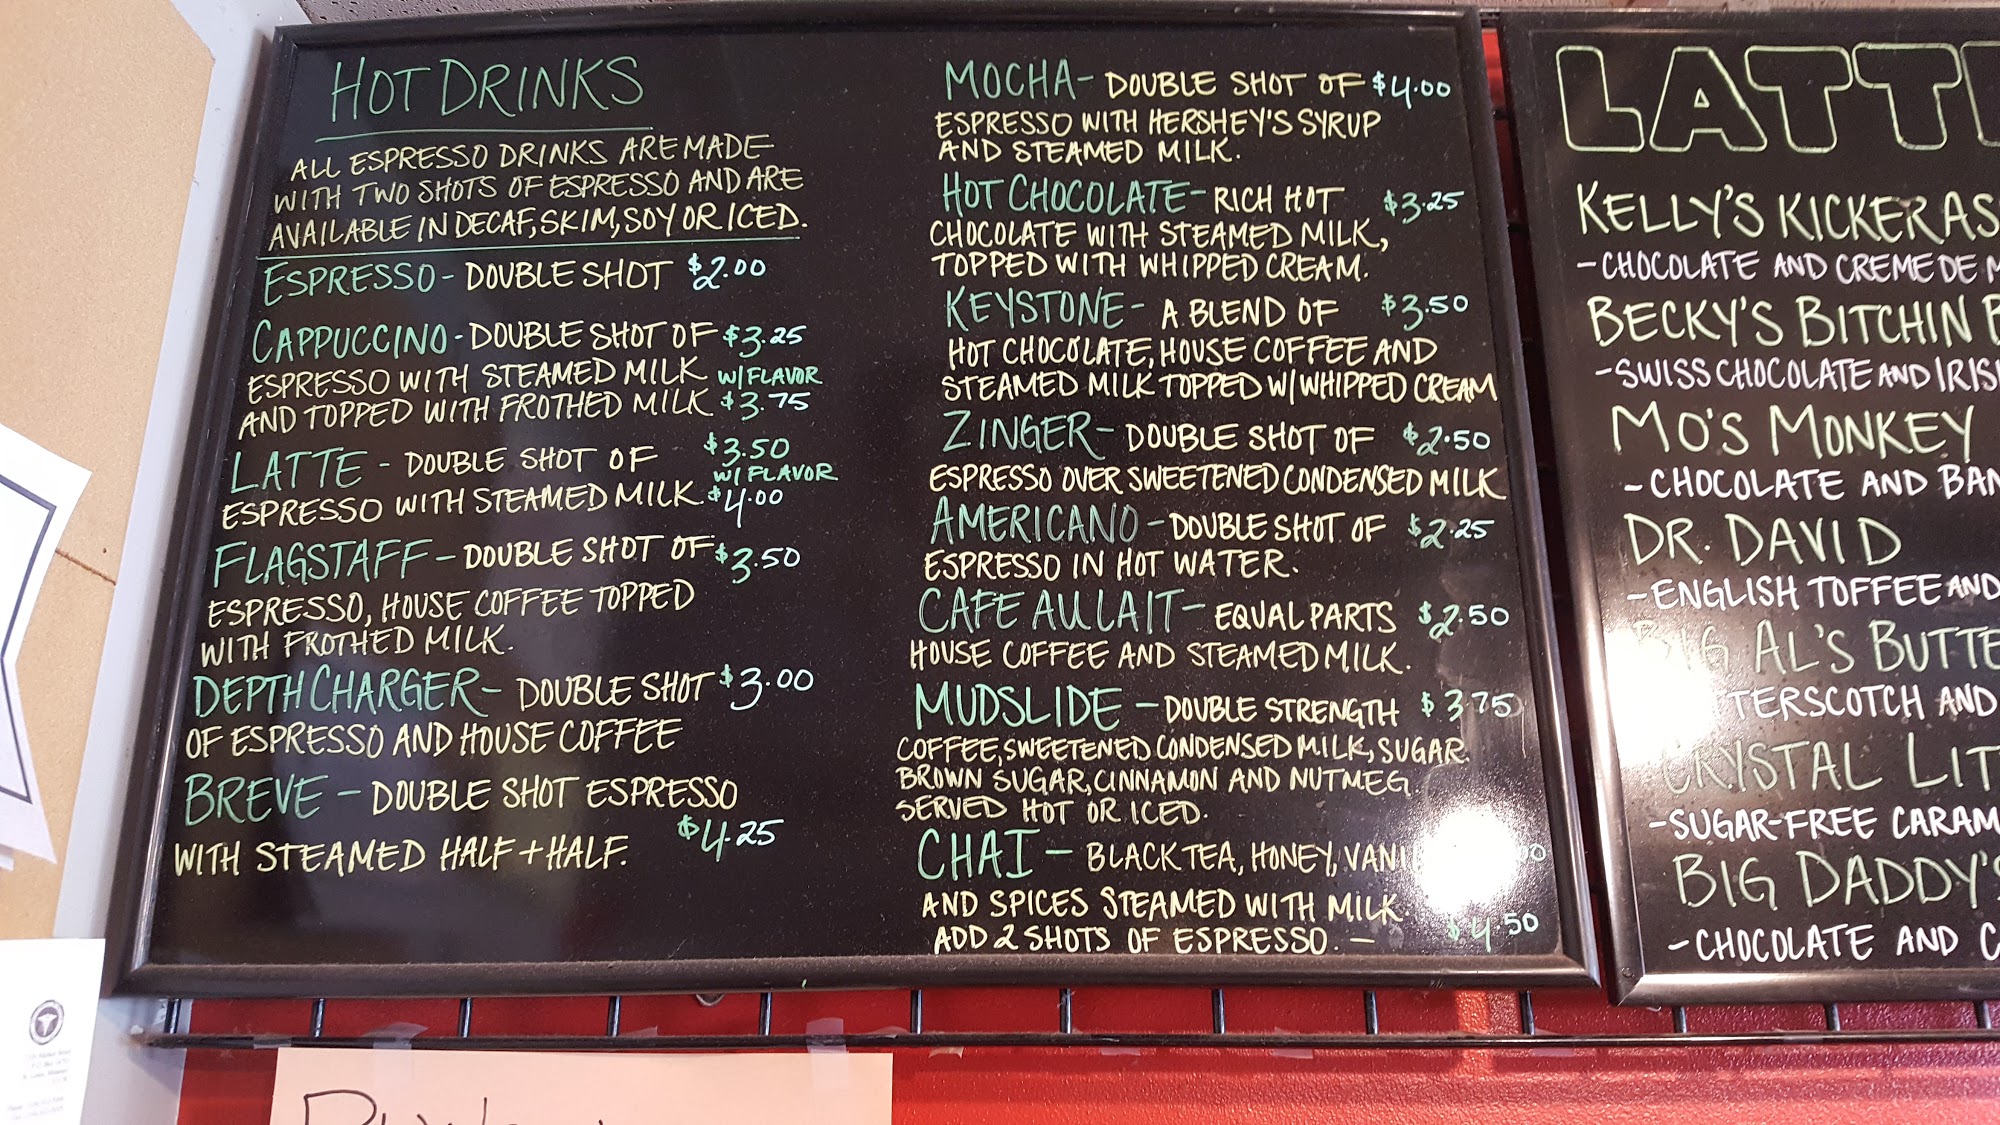 HOT DRINKS
ALL ESPRESSO DRINKS ARE MADE
WITH TWO SHOTS OF ESPRESSO AND ARE
AVAILABLE IN DECAF, SKIM, SOY OR ICED.
ESPRESSO - DOUBLE SHOT $2.00
CAPPUCCINO - DOUBLE SHOT OF $3.25
ESPRESSO WITH STEAMED MILK W/FLAVOR
AND TOPPED WITH FROTHED MILK $3.75
LATTE - DOUBLE SHOT OF $3.50
W/FLAVOR
ESPRESSO WITH STEAMED MILK $4.00
FLAGSTAFF - DOUBLE SHOT OF $3.50
ESPRESSO, HOUSE COFFEE TOPPED
WITH FROTHED MILK.
DEPTH CHARGER - DOUBLE SHOT $3.00
OF ESPRESSO AND HOUSE COFFEE
BREVE - DOUBLE SHOT ESPRESSO
$4.25
WITH STEAMED HALF + HALF.
MOCHA - DOUBLE SHOT OF $4.00
ESPRESSO WITH HERSHEY'S SYRUP
AND STEAMED MILK.
HOT CHOCOLATE - RICH HOT $3.25
CHOCOLATE WITH STEAMED MILK,
TOPPED WITH WHIPPED CREAM.
KEYSTONE - A BLEND OF $3.50
HOT CHOCOLATE, HOUSE COFFEE AND
STEAMED MILK TOPPED W/WHIPPED CREAM
ZINGER - DOUBLE SHOT OF $2.50
ESPRESSO OVER SWEETENED CONDENSED MILK
AMERICANO - DOUBLE SHOT OF $2.25
ESPRESSO IN HOT WATER.
CAFE AU LAIT - EQUAL PARTS $2.50
HOUSE COFFEE AND STEAMED MILK.
MUDSLIDE - DOUBLE STRENGTH $3.75
COFFEE, SWEETENED CONDENSED MILK, SUGAR
BROWN SUGAR, CINNAMON AND NUTMEG
SERVED HOT OR ICED.
CHAI - BLACK TEA, HONEY,
AND SPICES STEAMED WITH MILK
ADD 2 SHOTS OF ESPRESSO. - $4.50
KELLY'S
- CHOCOLATE AND CREME DE
BECKY'S BITCHIN
- SWISS CHOCOLATE AND
MO'S MONKEY
- CHOCOLATE AND
DR. DAVID
- ENGLISH TOFFEE AND
BIG AL'S
AND
CRYSTAL
- SUGAR-FREE
BIG DADDY'S
- CHOCOLATE AND